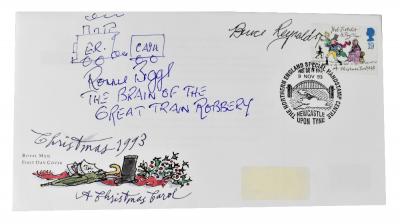 E.R.
CASH
Bruce Reynolds
Ronnie Biggs
THE BRAIN OF THE
GREAT TRAIN ROBBERY
19
THE NORTHERN ENGLAND SPECIAL HANDSTAMP CENTRE
9 NOV 93
NEWCASTLE
UPON TYNE
Christmas 1993
ROYAL MAIL
FIRST DAY COVER
A Christmas Carol